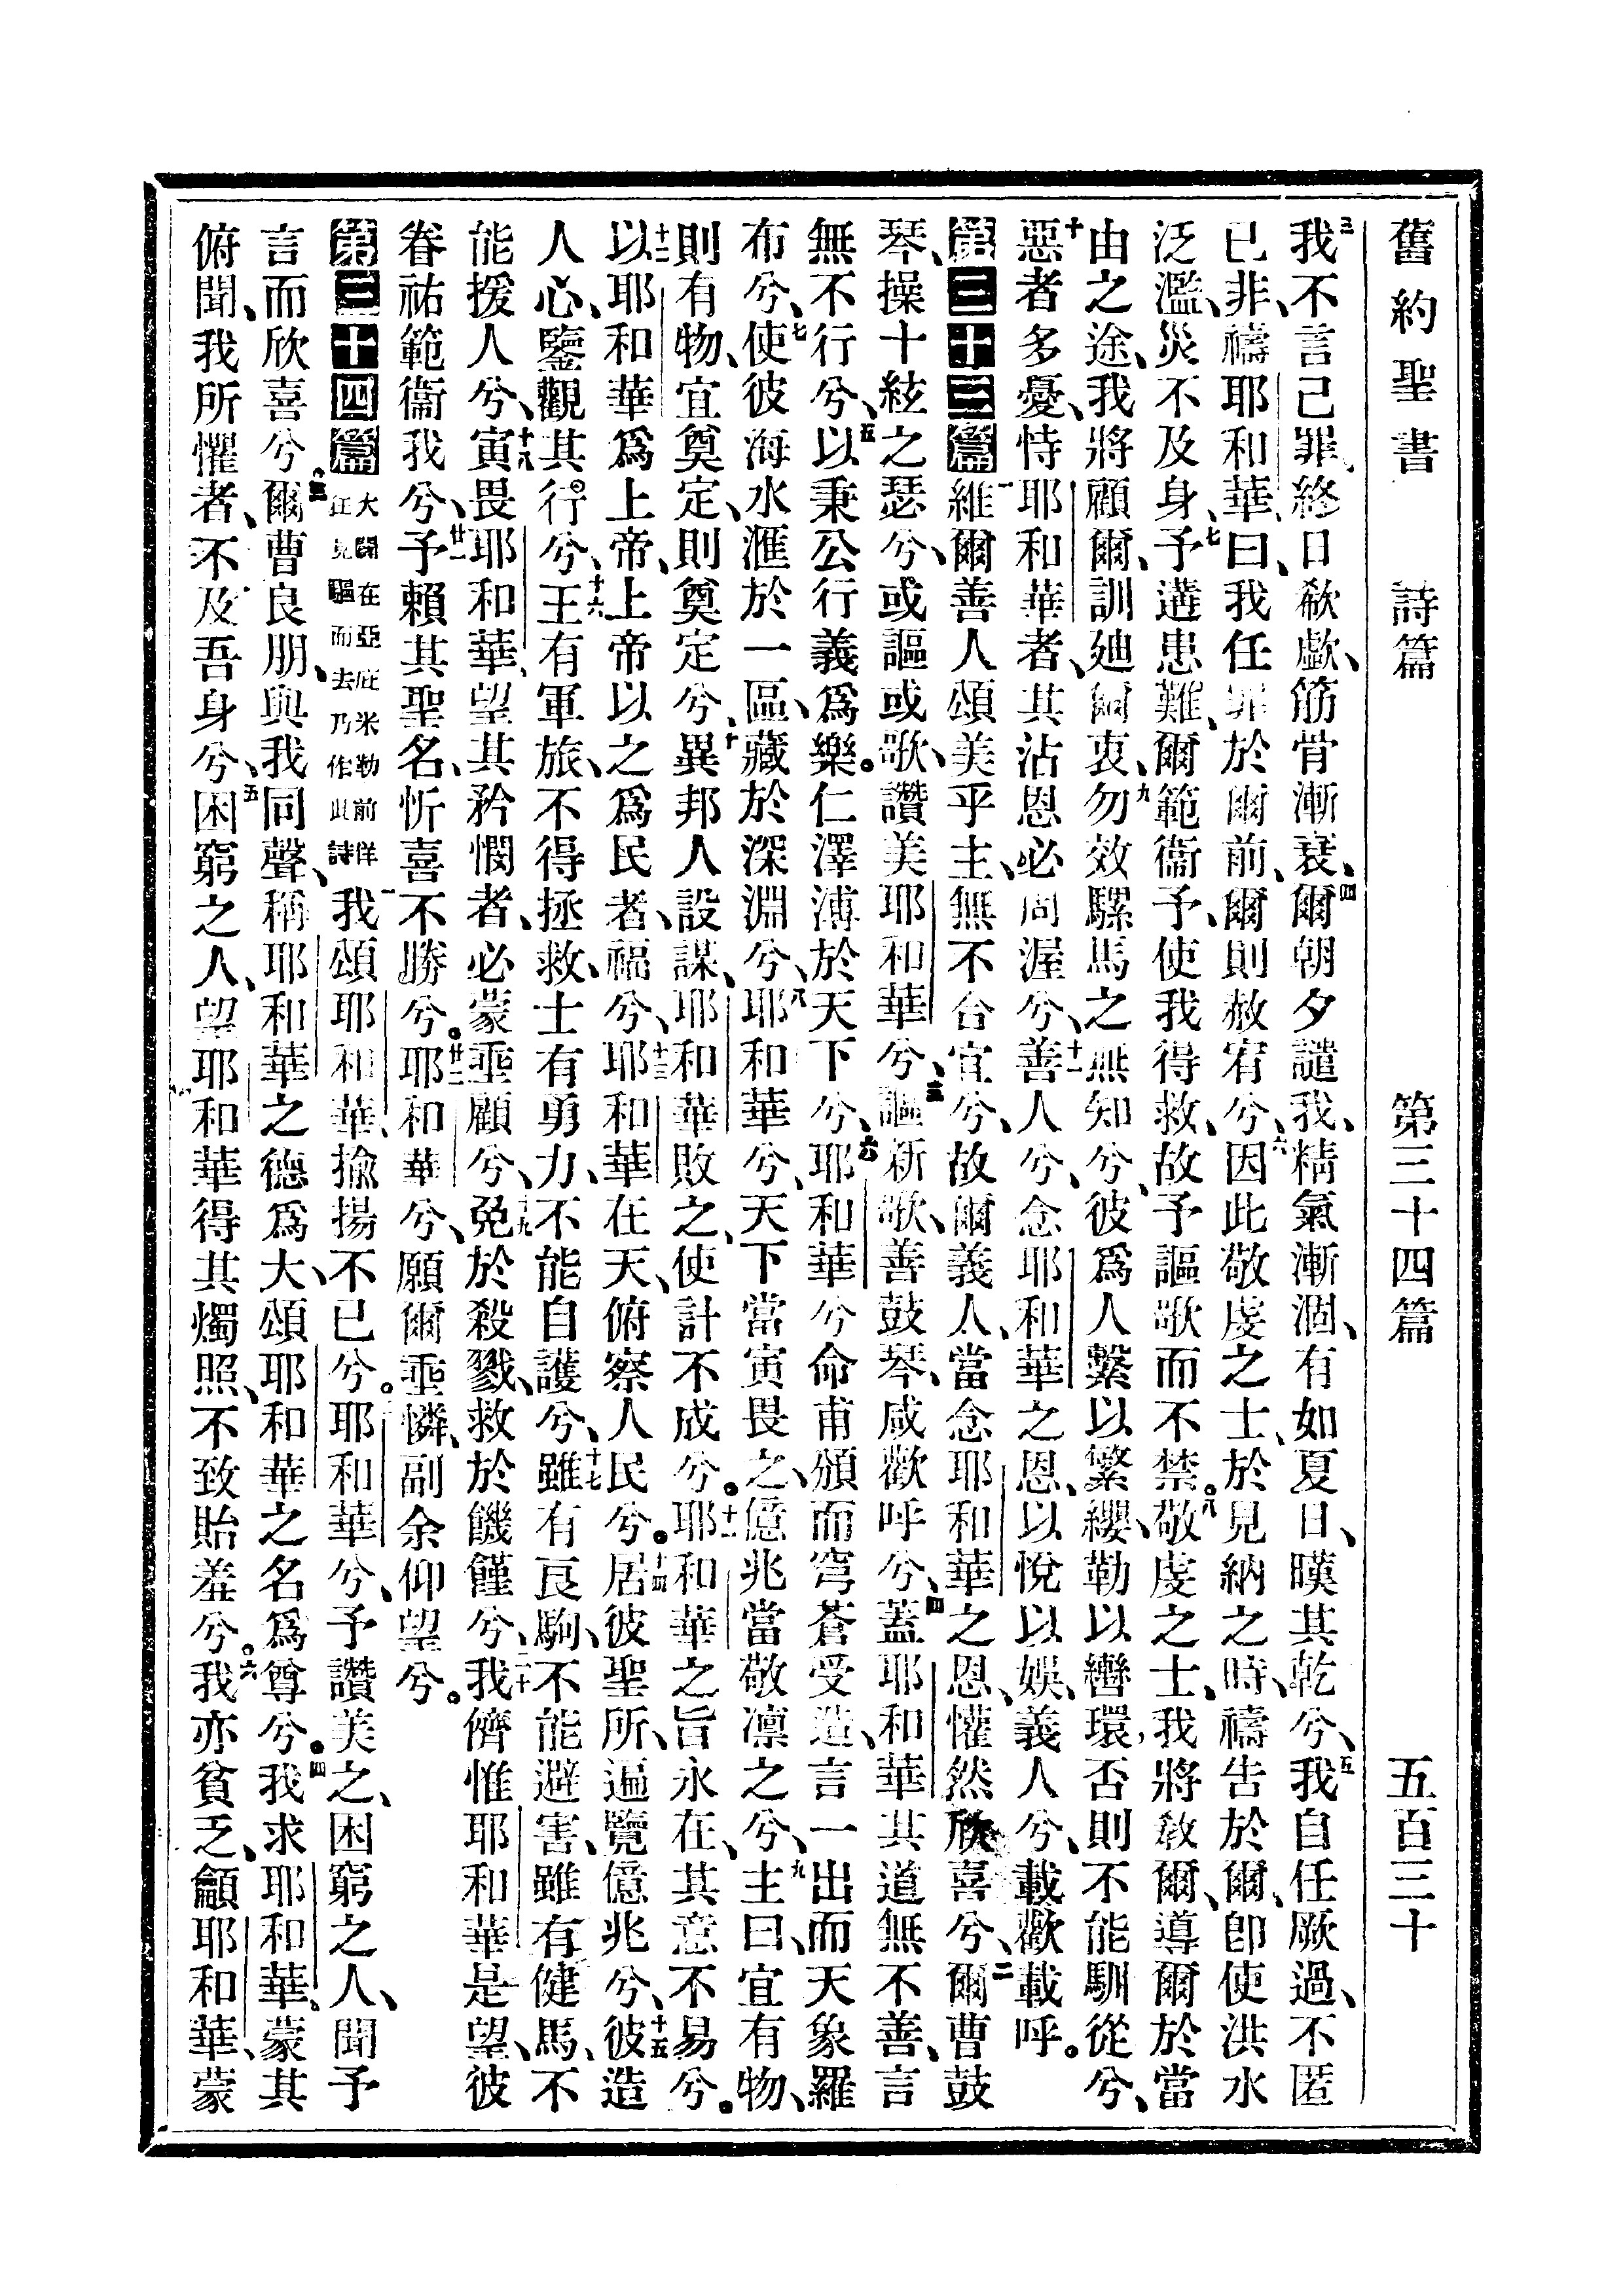 舊約聖書 詩篇 第三十四篇 五百三十
三我不言己罪、終日欷歔、筋骨漸衰、四爾朝夕譴我、精氣漸涸、有如夏日、暵其乾兮、五我自任厥過、不匿
已非、禱耶和華曰、我任罪於爾前、爾則赦宥兮、六因此敬虔之士、於見納之時、禱告於爾、卽使洪水
泛濫、災不及身、七予遘患難、爾範衞予、使我得救、故予謳歌而不禁。八敬虔之士、我將敎爾、導爾於當
由之途、我將顧爾、訓廸爾衷、九勿效騾馬之無知兮、彼爲人繫以繁纓、勒以轡環、否則不能馴從兮、
十惡者多憂、恃耶和華者、其沾恩必周渥兮、十一善人兮、念耶和華之恩、以悅以娛、義人兮、載歡載呼。
第三十三篇 一維爾善人頌美乎主、無不合宜兮、故爾義人、當念耶和華之恩、懽然欣喜兮、二爾曹鼓
琴、操十絃之瑟兮、或謳或歌、讚美耶和華兮、三謳新歌、善鼓琴、咸歡呼兮、四蓋耶和華其道無不善、言
無不行兮、五以秉公行義爲樂。仁澤溥於天下兮、六耶和華兮命甫頒而穹蒼受造、言一出而天象羅
布兮、七使彼海水滙於一區、藏於深淵兮、八耶和華兮、天下當寅畏之、億兆當敬凜之兮、九主曰、宜有物、
則有物、宜奠定、則奠定兮、十異邦人設謀、耶和華敗之、使計不成兮。十一耶和華之旨永在、其意不易兮。
十二以耶和華爲上帝、上帝以之爲民者、福兮、十三耶和華在天、俯察人民兮。十四居彼聖所、遍覽億兆兮、十五彼造
人心、鑒觀其行兮、十六王有軍旅、不得拯救、士有勇力、不能自護兮、十七雖有良駒、不能避害、雖有健馬、不
能援人兮、十八寅畏耶和華、望其矜憫者、必蒙垂顧兮、十九免於殺戮、救於饑饉兮、二十我儕惟耶和華是望、彼
眷祐範衞我兮、廿一予賴其聖名、忻喜不勝兮。廿二耶和華兮、願爾垂憐、副余仰望兮。
第三十四篇 大闢在亞庇米勒前佯狂見驅而去乃作此詩 一我頌耶和華、揄揚不已兮。二耶和華兮、予讚美之、困窮之人、聞予
言而欣喜兮。三爾曹良朋、與我同聲、稱耶和華之德爲大、頌耶和華之名爲尊兮。四我求耶和華、蒙其
俯聞、我所懼者、不及吾身兮、五困窮之人、望耶和華得其燭照、不致貽羞兮。六我亦貧乏、籲耶和華、蒙